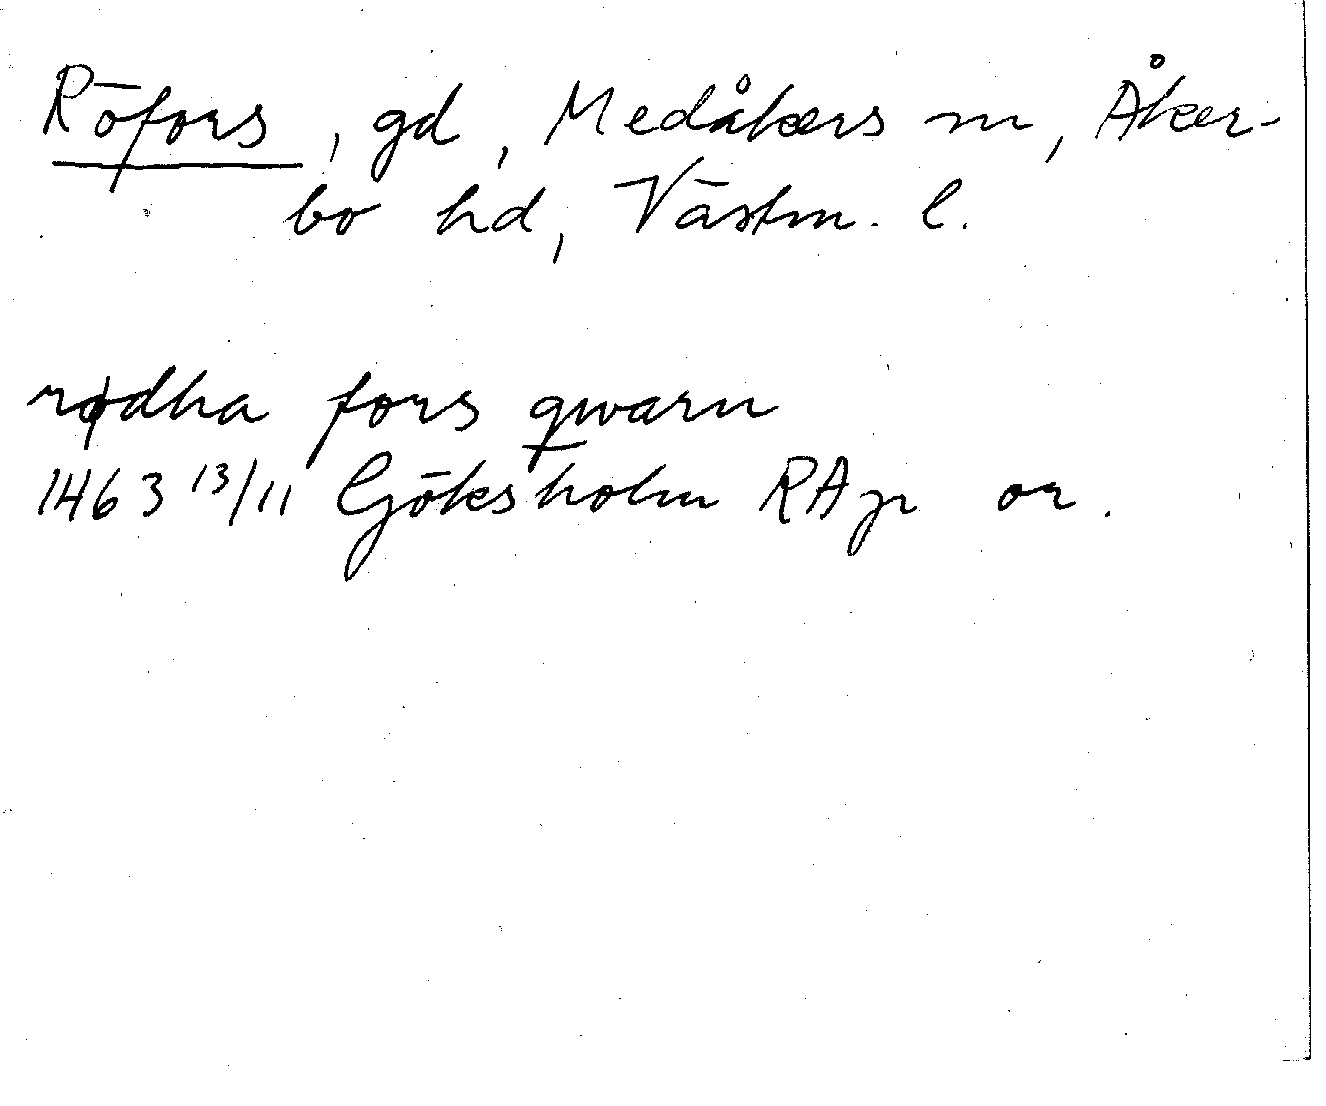 Röfors, gd, Medåkers sn, Åker-
bo hd, Västm. l.
rødha fors qwarn
1463 13/11 Göksholm RAp or.